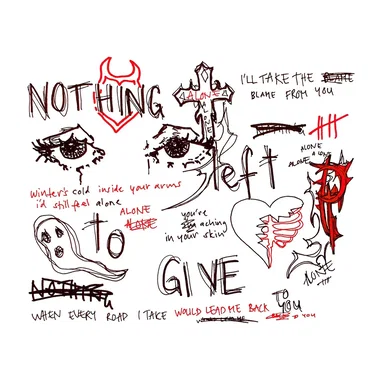 NOTHING
ALONE
I'LL TAKE THE BLAME
BLAME FROM YOU
left
ALONE
ALONE
winter's cold inside your arms
i'd still feel alone
ALONE
to
you're
aching
in your skin
GIVE
ALONE
NOTHING
TO
YOU
WHEN EVERY ROAD I TAKE WOULD LEAD ME BACK
TO YOU